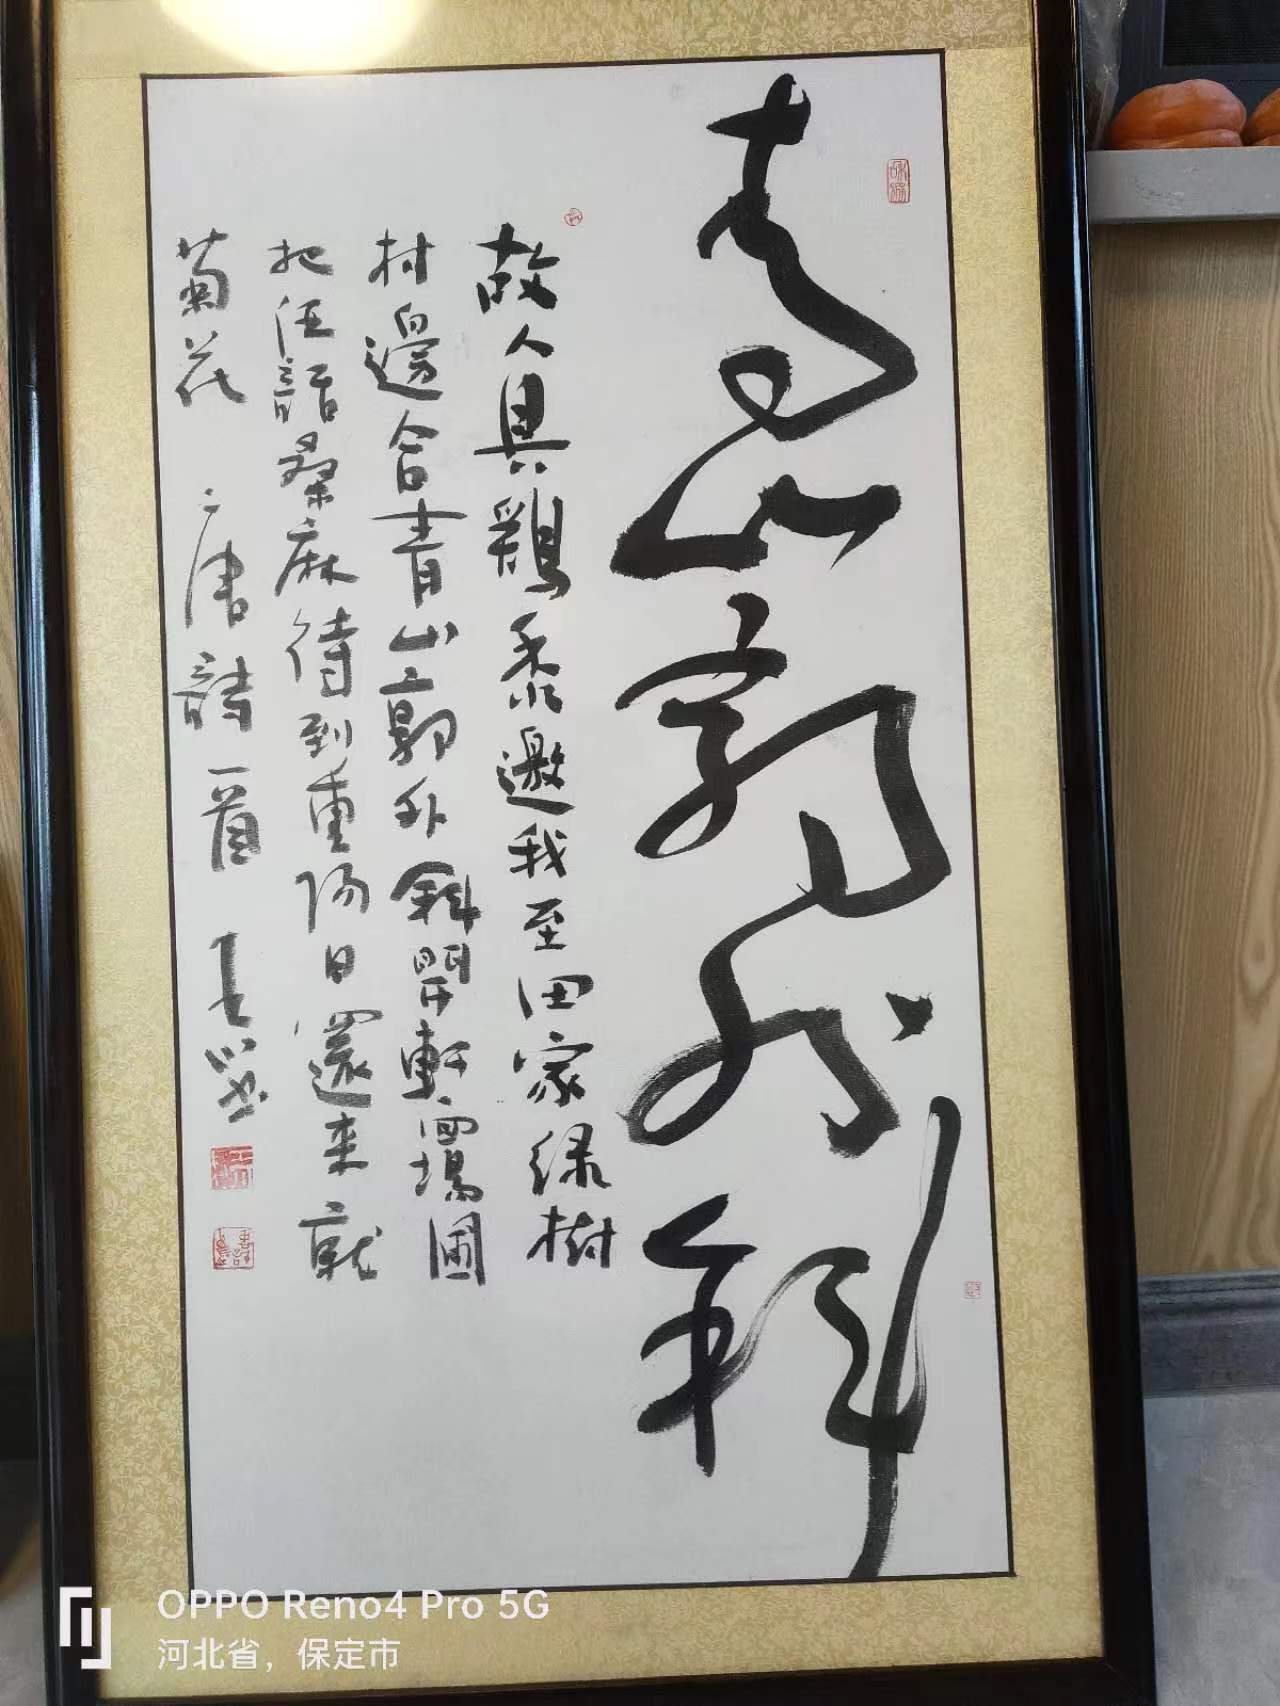 青山郭外斜
故人具鷄黍邀我至田家緑樹
村邊合青山郭外斜開軒面場圃
把酒話桑麻待到重陽日還来就
菊花 唐詩一首
OPPO Reno4 Pro 5G
河北省，保定市